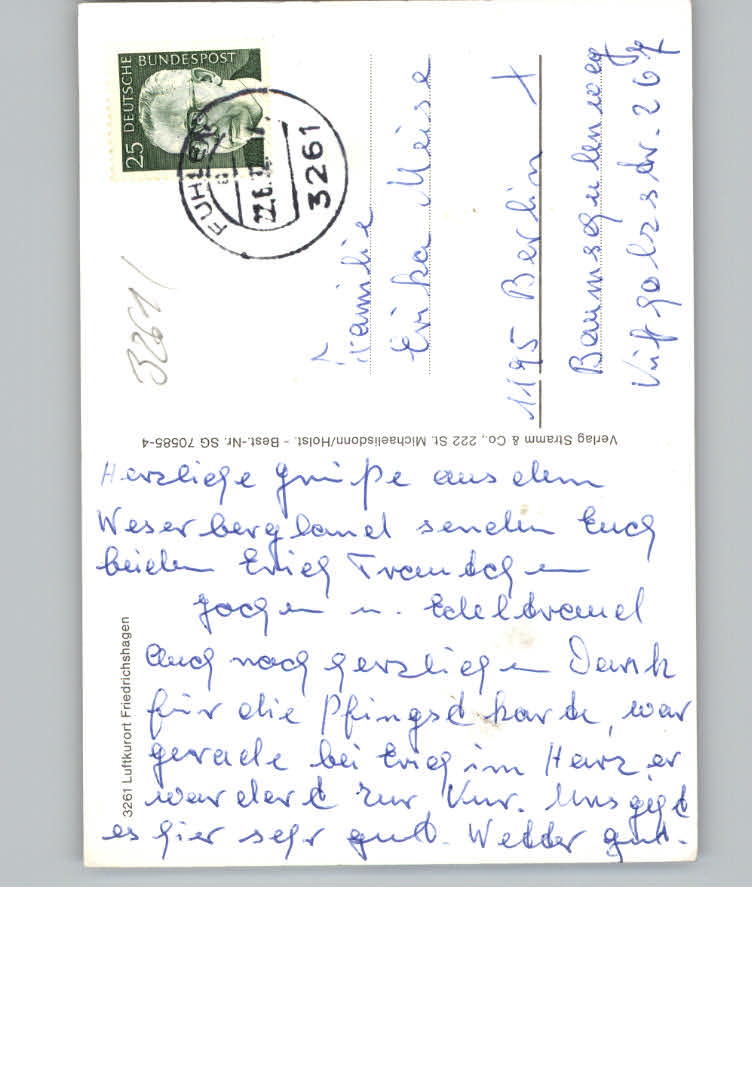 Herzliche Grüße aus dem
Weserbergland senden Euch
beiden Erich Traudchen
Jochen u. Edeltraud
Auch noch herzlichen Dank
für die Pfingstkarte, war
gerade bei Erich im Harz, er
war dort zur Kur. Uns geht
es hier sehr gut. Wetter gut.
3261 Luftkurort Friedrichshagen
Verlag Stramm & Co., 222 St. Michaelisdonn/Holst. - Best.-Nr. SG 70585-4
25 DEUTSCHE BUNDESPOST
FUHLEN
22.6.
3261
3261/
Familie
Erika Meise
1195 Berlin
Baumschulenweg